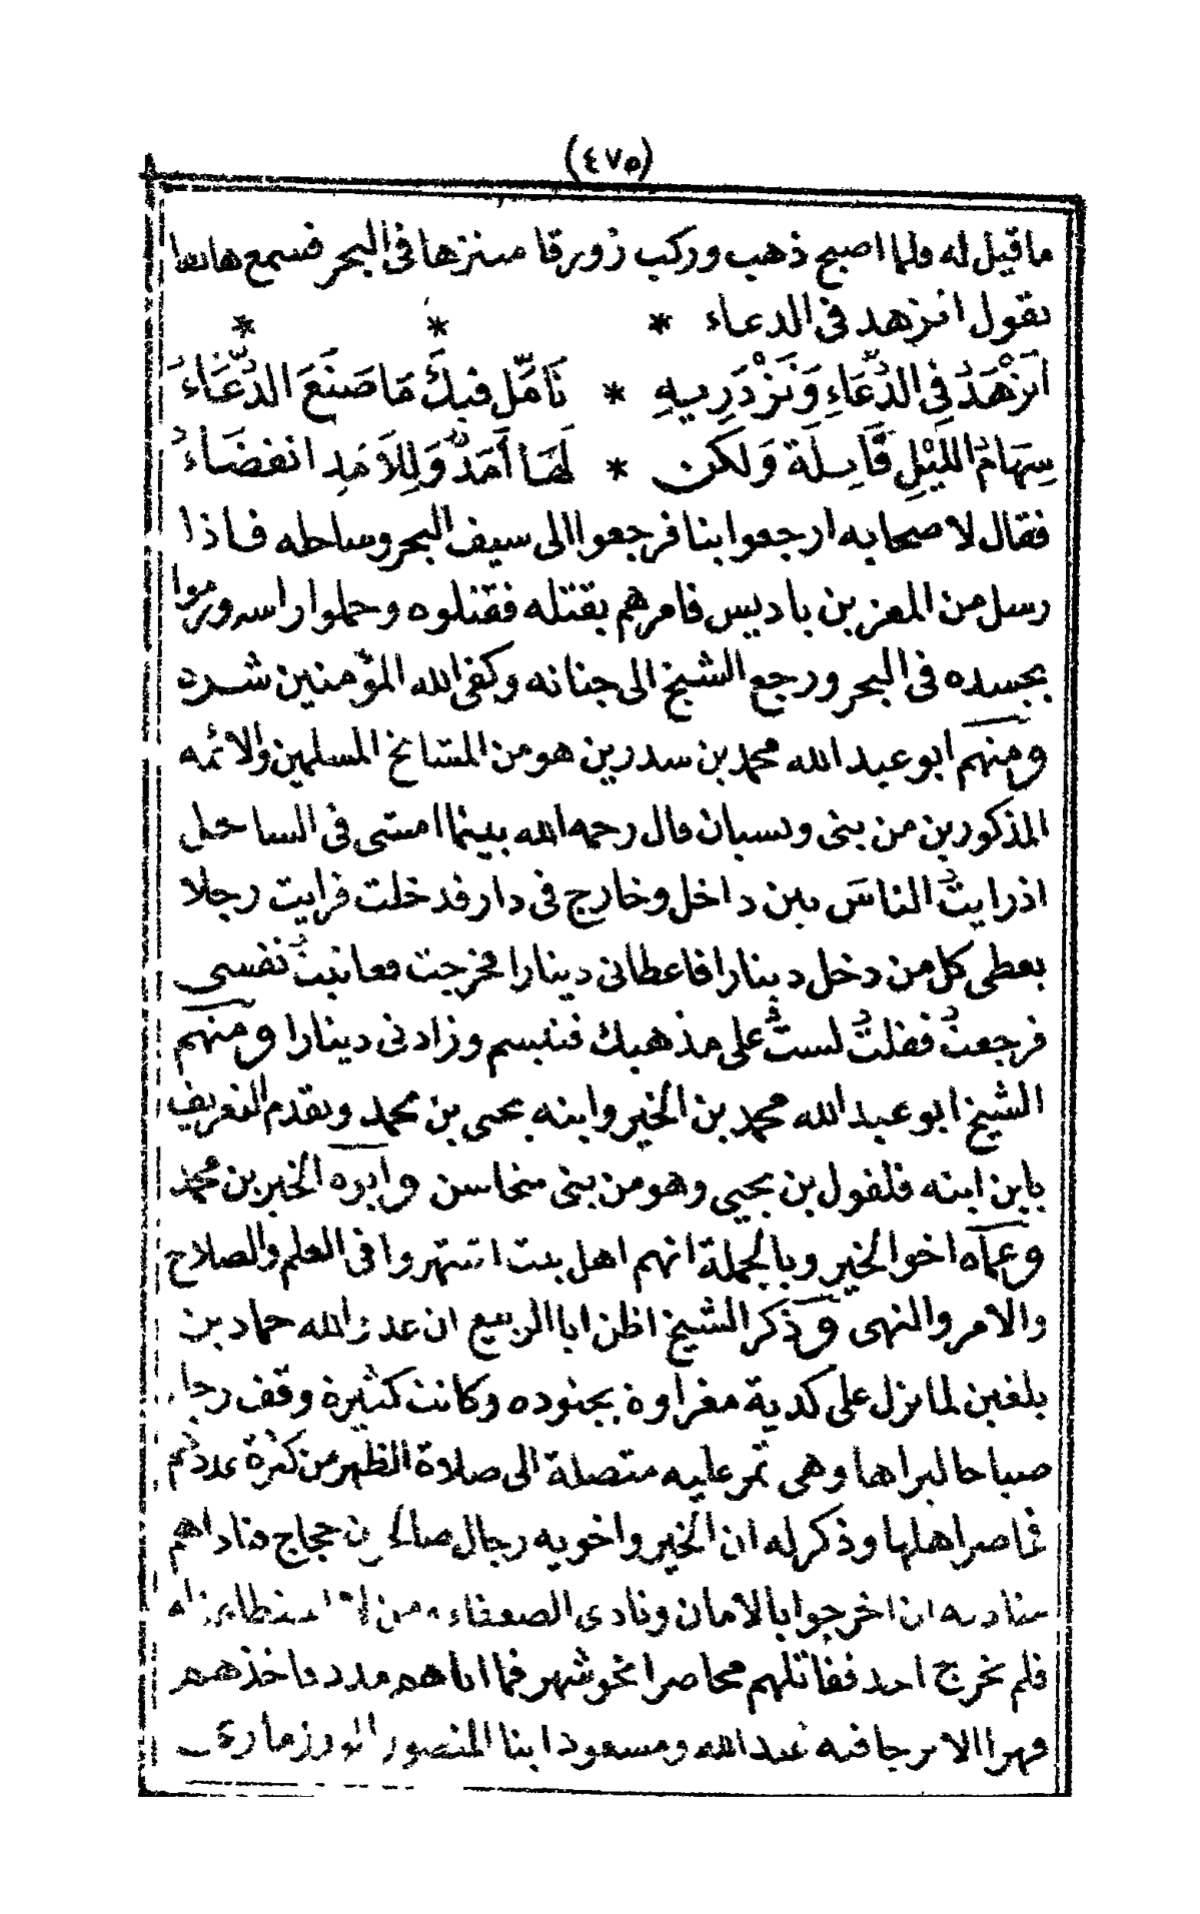 (٤٧٥)
ما قيل له ولما اصبح ذهب وركب زورقا متنزها فى البحر فسمع هاتفا
يقول اتزهد فى الدعاء * * *
اَتَزْهَدُ فِى الدُّعَاءِ وَتَزْدَرِيهِ * تَاَمَّل فِيكَ مَا صَنَعَ الدُّعَاءُ
سِهَامُ اللَّيْلِ قَاتِلَة وَلَكن * لَهَا أَمَدٌ وَلِلاَمَدِ انقضَاءُ
فقال لاصحابه ارجعوا بنا فرجعوا الى سيف البحر وساحله فاذا
رسل من المعز بن باديس فامرهم بقتله فقتلوه وحملوا راسه ورموا
بجسده فى البحر ورجع الشيخ الى جنانه وكفى الله المؤمنين شره
ومنهم ابو عبد الله محمد بن سدرين هو من المشائخ المسلمين والائمه
المذكورين من بنى ويسيان قال رحمه الله بينما امشى فى الساحل
اذ رايتُ الناسَ بين داخل وخارج فى دار فدخلت فرايت رجلا
يعطى كل من دخل دينارا فاعطانى دينارا فخرجت فعاتبتُ نفسى
فرجعتُ فقلتُ لستُ على مذهبك فتبسم وزادنى دينارا ومنهم
الشيخ ابو عبد الله محمد بن الخير وابنه يحيى بن محمد وتقدم التعريف
بابن ابنه فلفول بن يحيى وهو من بنى منحاسن وابوه الخير بن محمد
وعماه اخوا الخير وبالجملة انهم اهل بيت اشتهروا فى العلم والصلاح
والامر والنهى وذكر الشيخ اظن ابا الربيع ان عدو الله حماد بن
بلغين لما نزل على كدية مغراوة بجنوده وكانت كثيرة وقف
صباحا ليراها وهى تمر عليه متصلة الى صلاة الظهر من كثرة عددهم
فحاصر اهلها وذكر له ان الخير واخويه رجال صالحون حجاج فناداهم
مناديه ان اخرجوا بالامان ونادى الضعفاء ومن
فلم يخرج احد فقاتلهم محاصرا نحو شهر فما اتاهم مدد فاخذهم
قهرا الا برجا فيه عبد الله ومسعود ابنا المنصور